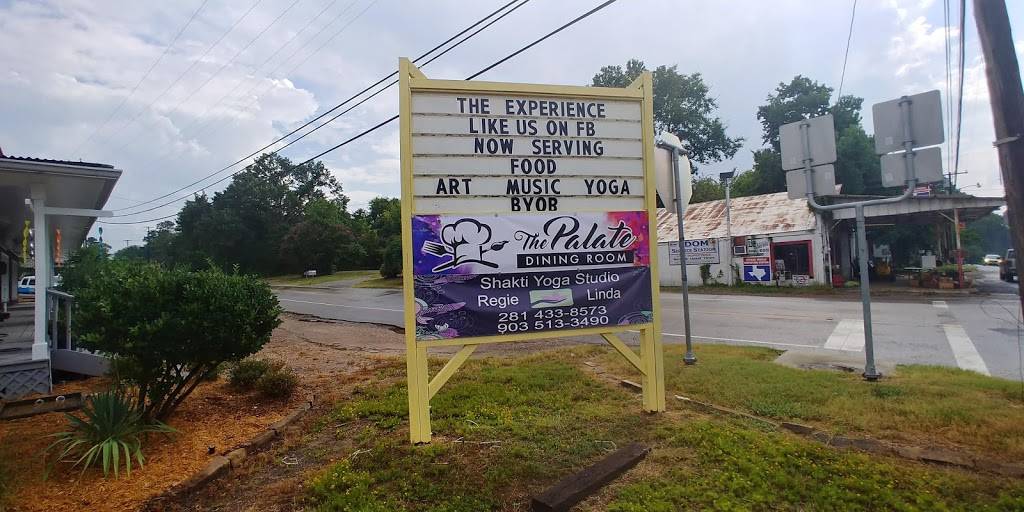 THE EXPERIENCE
LIKE US ON FB
NOW SERVING
FOOD
ART MUSIC YOGA
BYOB
The Palate
DINING ROOM
Shakti Yoga Studio
Regie Linda
281 433-8573
903 513-3490